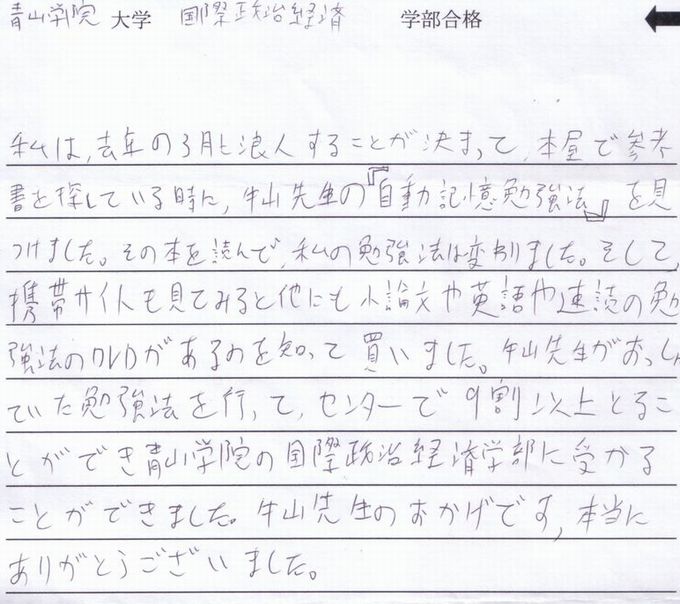 青山学院 大学 国際政治経済 学部合格
私は、去年の3月に浪人することが決まって、本屋で参考
書を探している時に、牛山先生の『自動記憶勉強法』を見
つけました。その本を読んで、私の勉強法は変わりました。そして、
携帯サイトも見てみると他にも小論文や英語や速読の勉
強法のDVDがあるのを知って買いました。牛山先生がおっしゃっ
ていた勉強法を行って、センターで9割以上とるこ
とができ青山学院の国際政治経済学部に受かる
ことができました。牛山先生のおかげです、本当に
ありがとうございました。